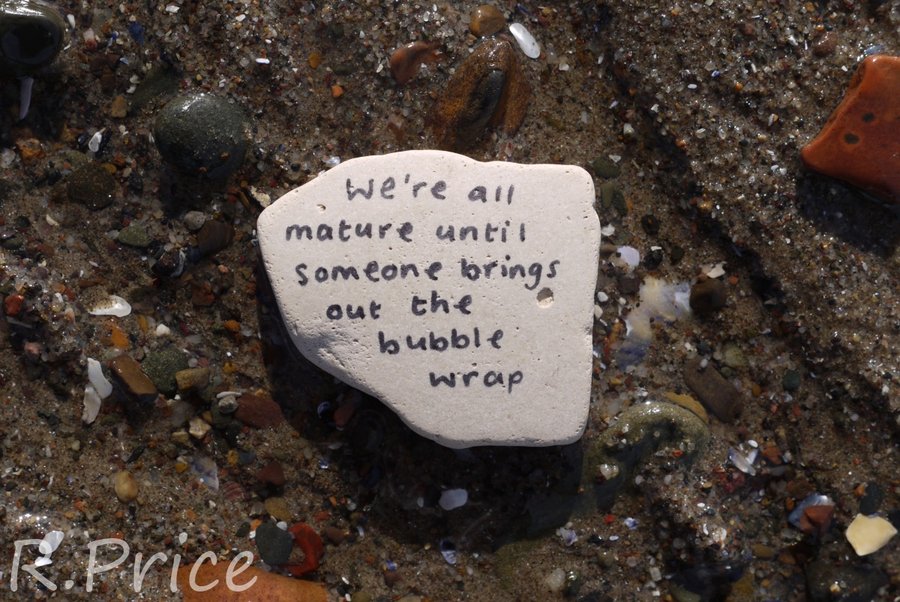 We're all
mature until
someone brings
out the
bubble
wrap
R.Price